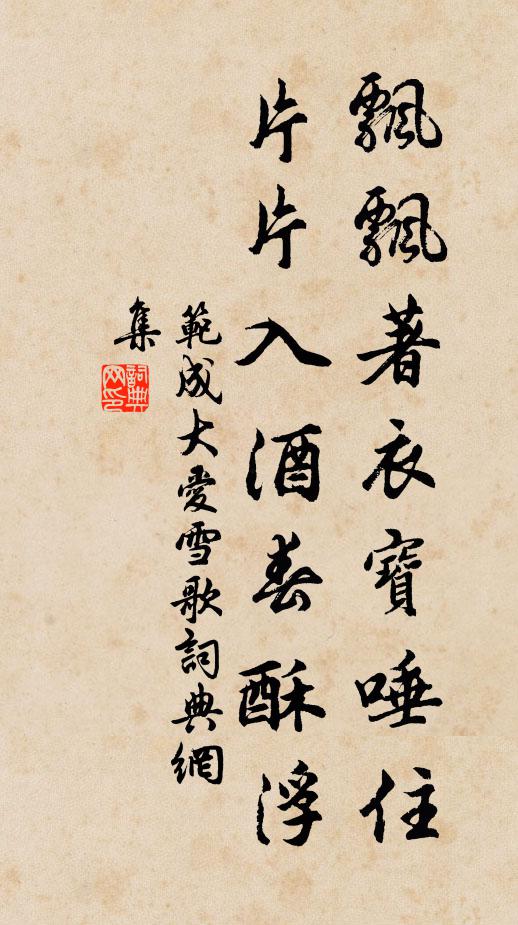 飄飄著衣寶唾住
片片入酒春酥浮
範成大愛雪歌詞典網
集
詞典
网印